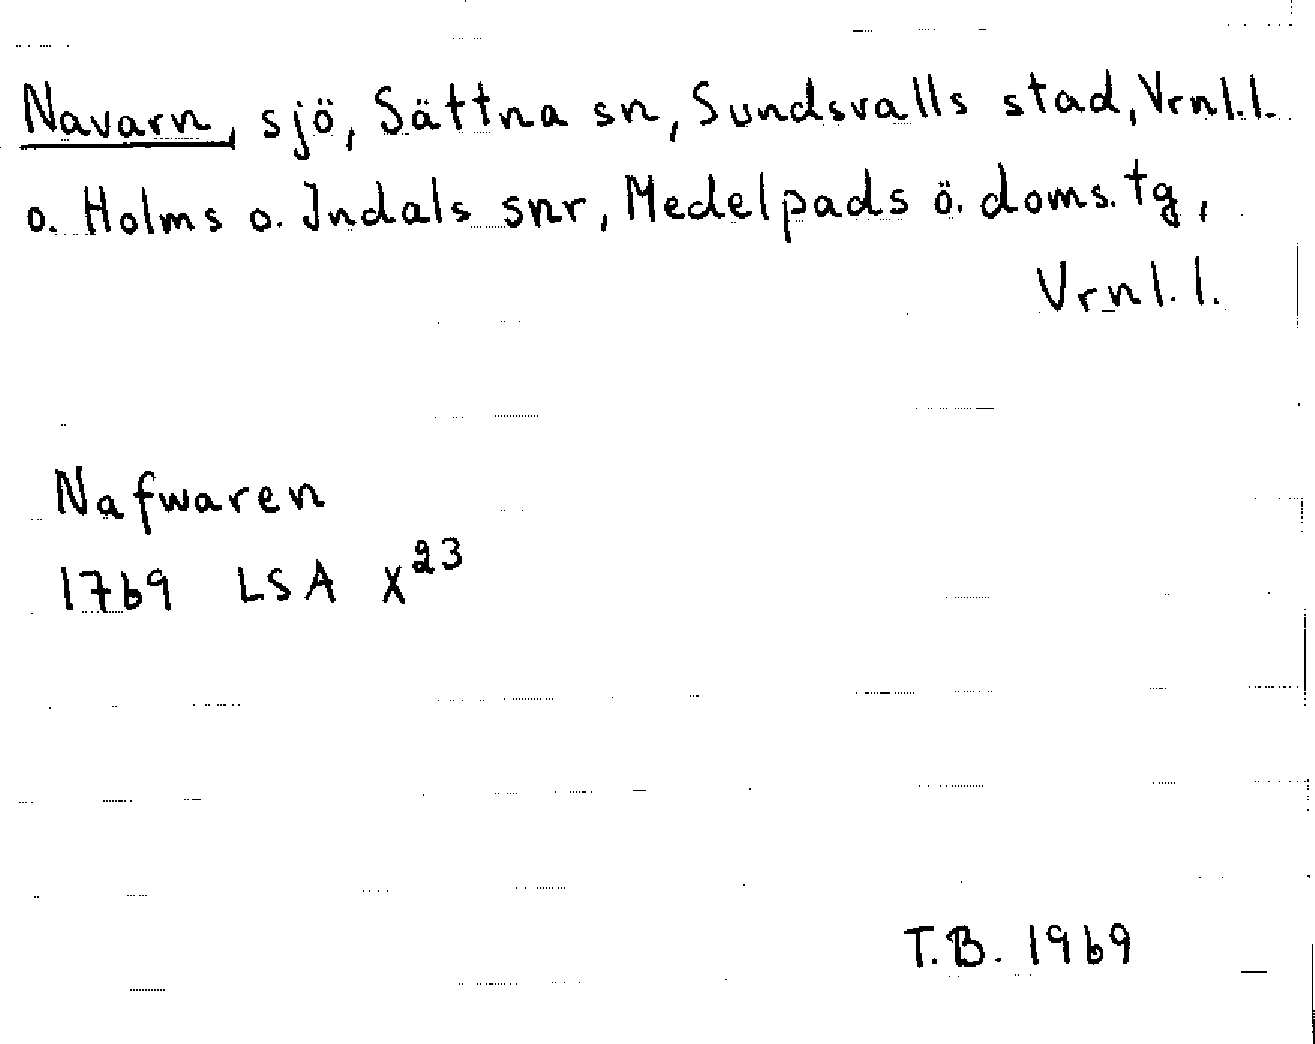 Navarn, sjö, Sättna sn, Sundsvalls stad, Vrnl.l.
o. Holms o. Indals snr, Medelpads ö. doms. tg,
Vrnl.l.
Nafwaren
1769 LSA X²³
T.B. 1969